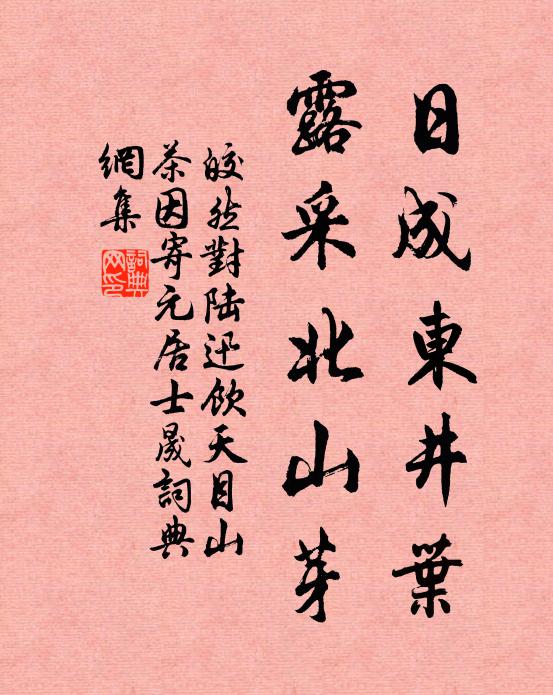 日成東井葉
露采北山芽
皎然對陆迅飲天目山
茶因寄元居士晟詞典
網集
詞典網印